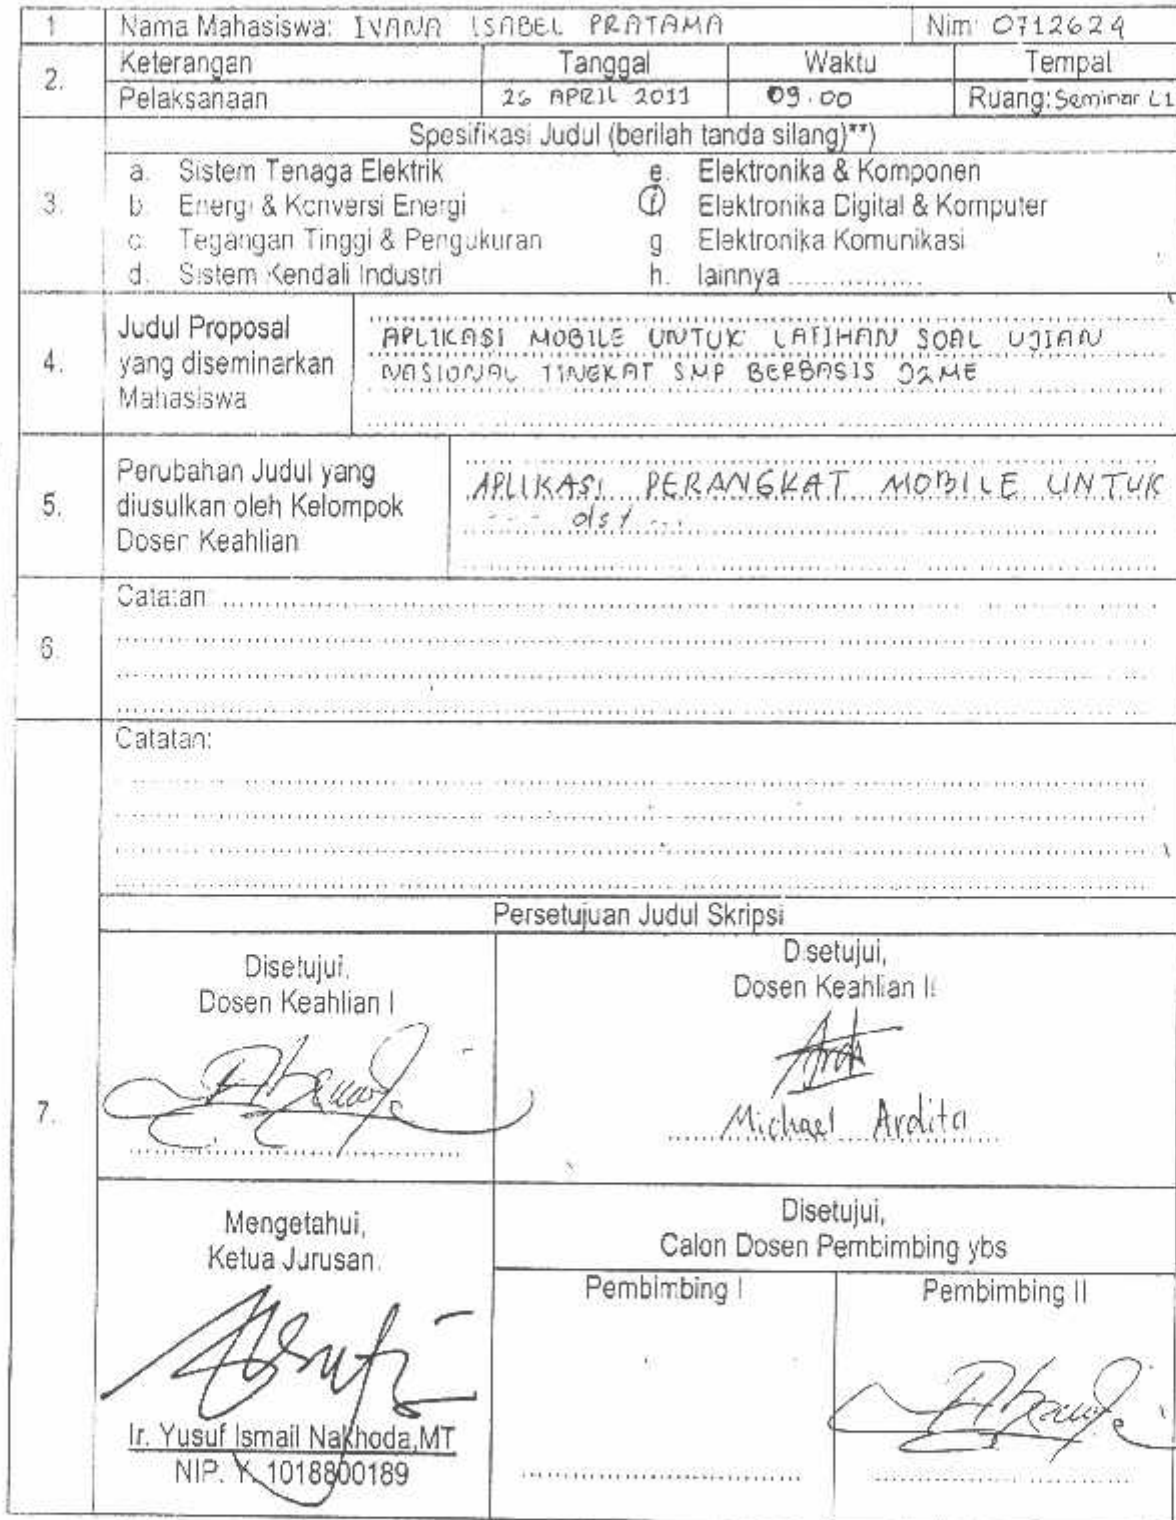 1 Nama Mahasiswa: IVANA ISABEL PRATAMA Nim: 0712624
2. Keterangan Tanggal Waktu Tempat
Pelaksanaan 26 APRIL 2011 09.00 Ruang: Seminar L1
Spesifikasi Judul (berilah tanda silang)**)
3.
a. Sistem Tenaga Elektrik e. Elektronika & Komponen
b. Energi & Konversi Energi f Elektronika Digital & Komputer
c. Tegangan Tinggi & Pengukuran g Elektronika Komunikasi
d. Sistem Kendali Industri h. lainnya ................
4.
Judul Proposal
yang diseminarkan
Mahasiswa
APLIKASI MOBILE UNTUK LATIHAN SOAL UJIAN
NASIONAL TINGKAT SMP BERBASIS J2ME
5.
Perubahan Judul yang
diusulkan oleh Kelompok
Dosen Keahlian
APLIKASI PERANGKAT MOBILE UNTUK
--- dst ...
6.
Catatan:
7.
Catatan:
Persetujuan Judul Skripsi
Disetujui,
Dosen Keahlian I
Disetujui,
Dosen Keahlian II
Michael Ardita
Mengetahui,
Ketua Jurusan.
Ir. Yusuf Ismail Nakhoda,MT
NIP. Y. 1018800189
Disetujui,
Calon Dosen Pembimbing ybs
Pembimbing I Pembimbing II